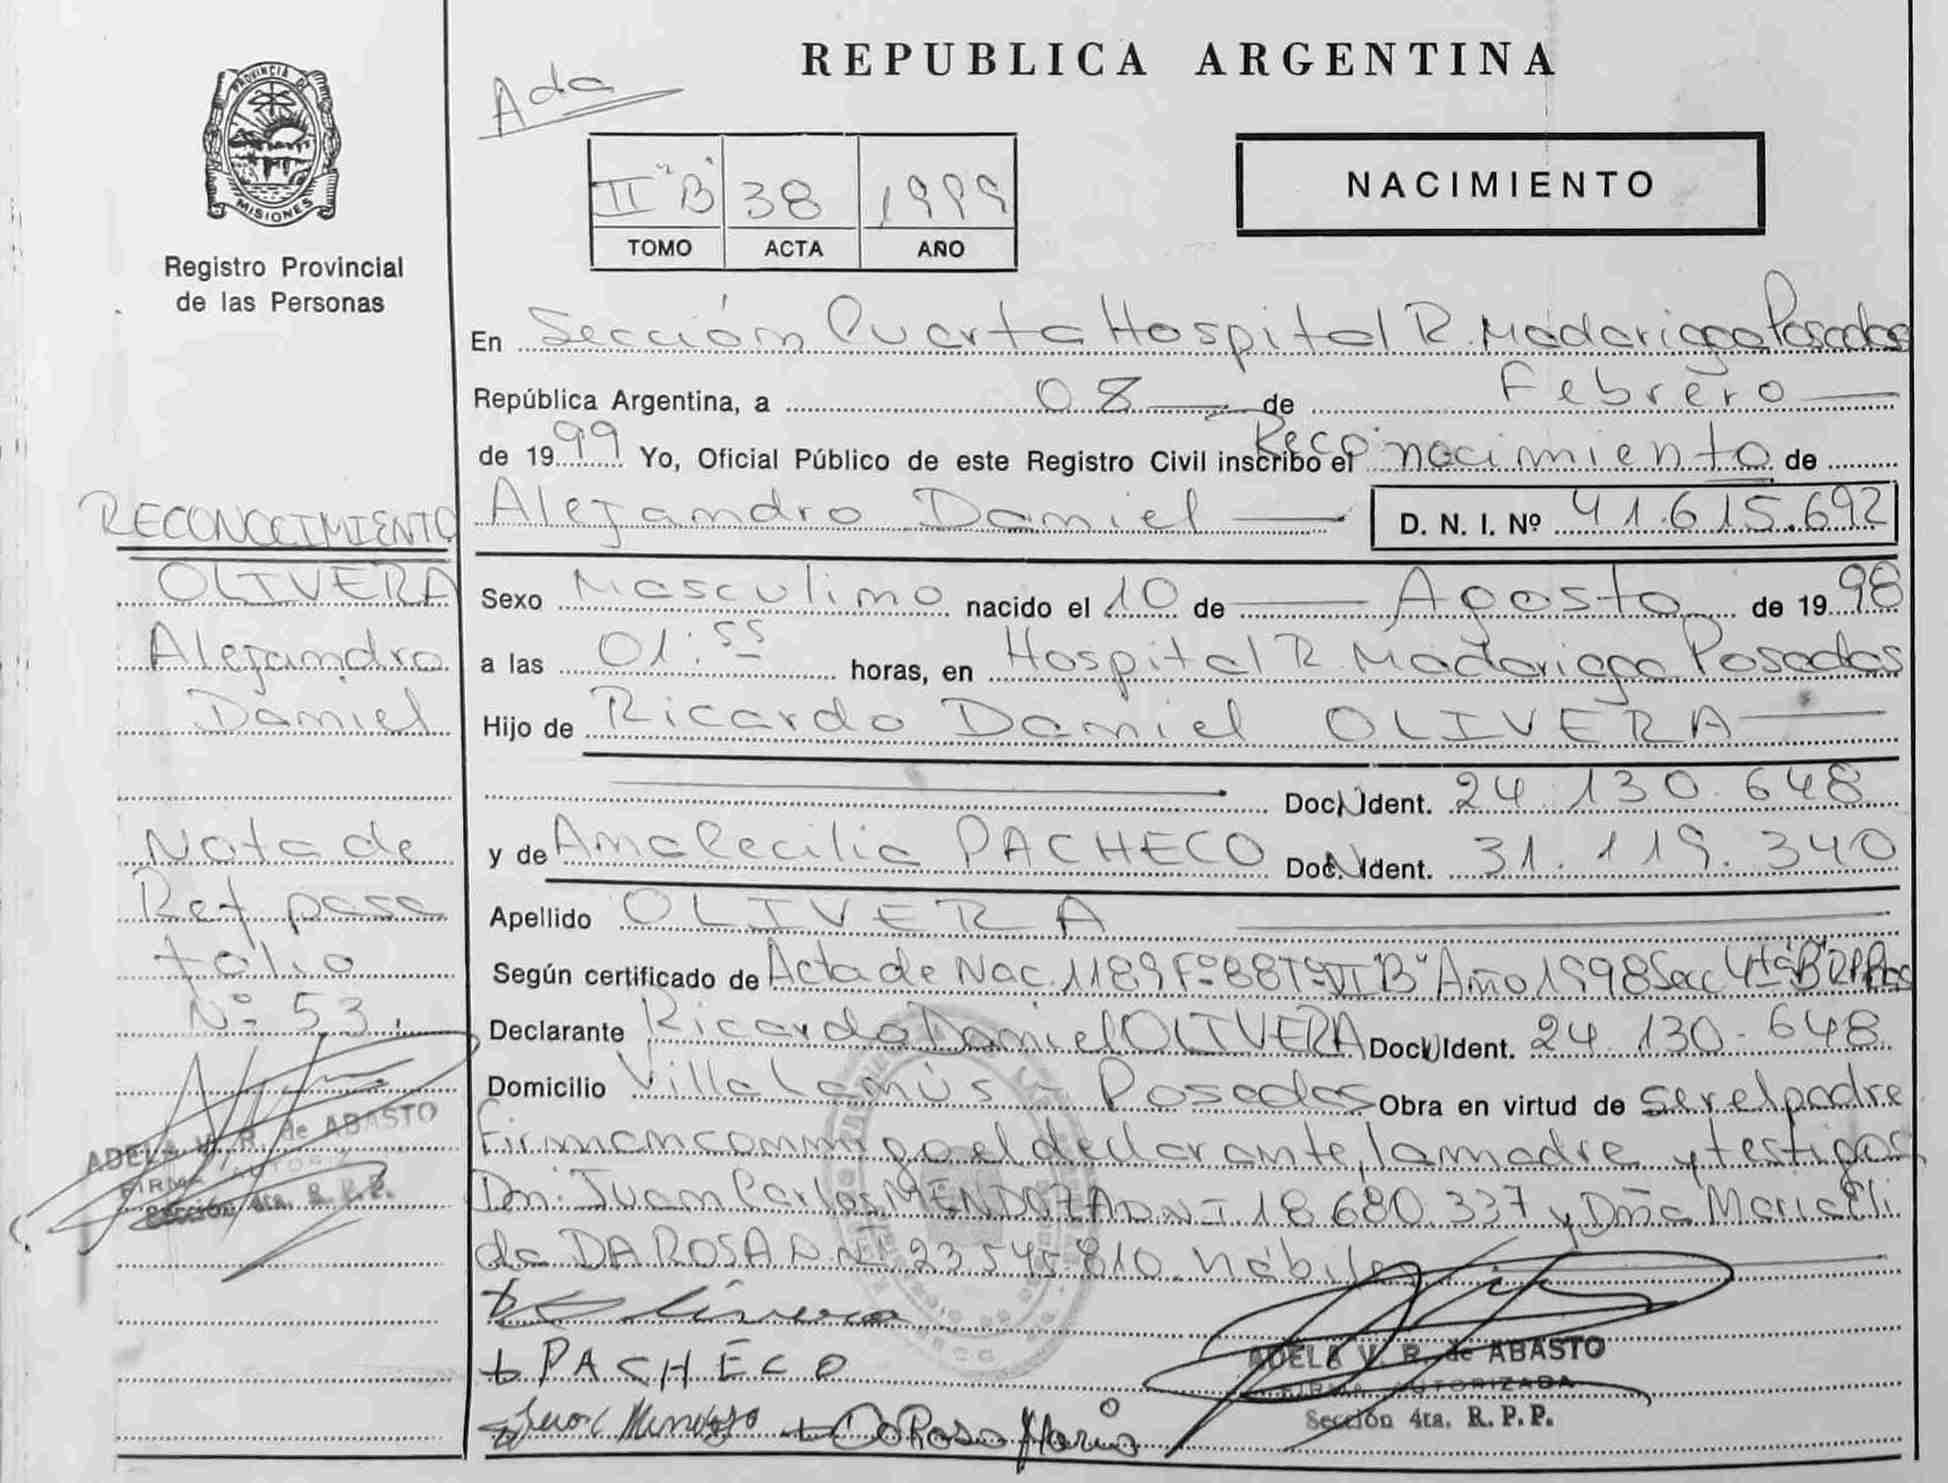 PROVINCIA DE
MISIONES
Registro Provincial
de las Personas
RECONOCIMIENTO
OLIVERA
Alejandro
Daniel
Nota de
Ref pasa
folio
Nº 53.
ADELA V. R. de ABASTO
FIRMA AUTORIZ
Sección 4ta. R. P. P.
REPUBLICA ARGENTINA
Ada
II "B" 38 1999
TOMO ACTA AÑO
NACIMIENTO
En Sección Cuarta Hospital R. Madariaga Posadas
República Argentina, a 08 de Febrero
de 1999 Yo, Oficial Público de este Registro Civil inscribo el Reconocimiento de
Alejandro Daniel D. N. I. Nº 41.615.692
Sexo Masculino nacido el 10 de Agosto de 1998
a las 01:55 horas, en Hospital R. Madariaga Posadas
Hijo de Ricardo Daniel OLIVERA
Doc. Ident. 24.130.648
y de Ana Cecilia PACHECO Doc. Ident. 31.119.340
Apellido OLIVERA
Según certificado de Acta de Nac. 1189 Fº 88 Tº VI "B" Año 1998 Secc 4ta "B"
Declarante Ricardo Daniel OLIVERA Doc. Ident. 24.130.648
Domicilio Villa Lanús - Posadas Obra en virtud de ser el padre
Firman conmigo el declarante, la madre y testigos
Dn: Juan Carlos MENDOZA D.N.I 18.680.337 y Dña Maria Eli
da DA ROSA D.N.I 23.545.810. hábiles
Olivera
PACHECO
Juan C Mendoza Da Rosa Maria
ADELA V. R. de ABASTO
FIRMA AUTORIZADA
Sección 4ta. R. P. P.